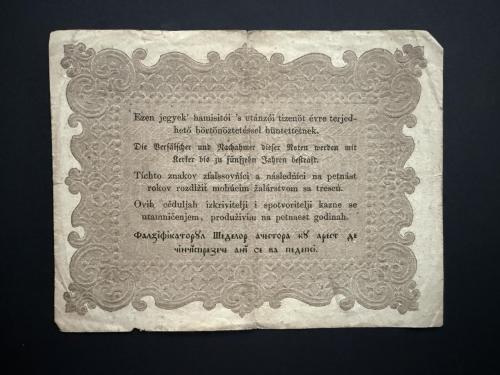 Ezen jegyek' hamisitói 's utánzói tizenöt évre terjed-
hető börtönöztetéssel büntettetnek.
Die Verfälscher und Nachahmer dieser Noten werden mit
Kerker bis zu fünfzehn Jahren bestraft.
Tíchto znakov zfalssovňíci a následňíci na petnást
rokov rozdlžiť mohúcim žalárstvom sa trescú.
Ovih céduljah izkrivitelji i spotvoritelji kazne se
utamničenjem, produživim na petnaest godinah.
Фалзіфікаторꙋл Шеделор ачестора кꙋ арест де
чінчіспрезече анї се ва педепсі.